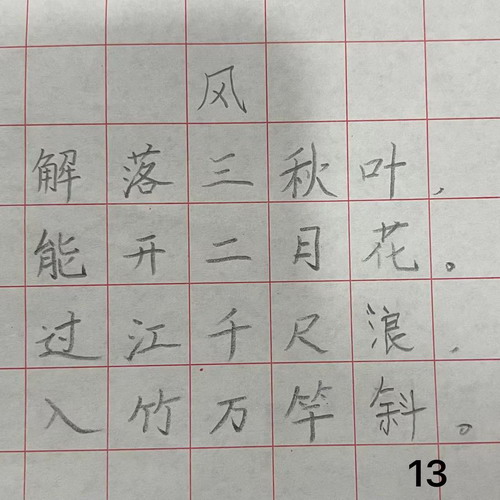 风
解落三秋叶,
能开二月花。
过江千尺浪,
入竹万竿斜。
13